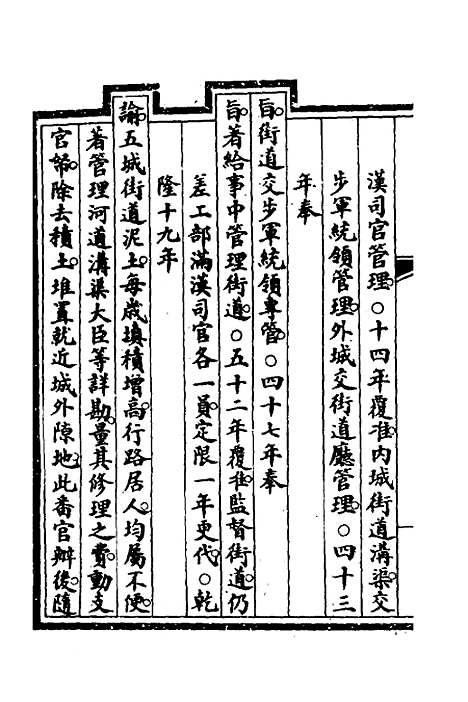 漢司官管理○十四年覆准內城街道溝渠交
步軍統領管理外城交街道廳管理○四十三
年奉
旨街道交步軍統領專管○四十七年奉
旨著給事中管理街道○五十二年覆准監督街道仍
差工部滿漢司官各一員定限一年更代○乾
隆十九年
諭五城街道泥土每歲填積增高行路居人均屬不便
著管理河道溝渠大臣等詳勘量其修理之費動支
官帑除去積土堆置就近城外隙地此番官辦後隨